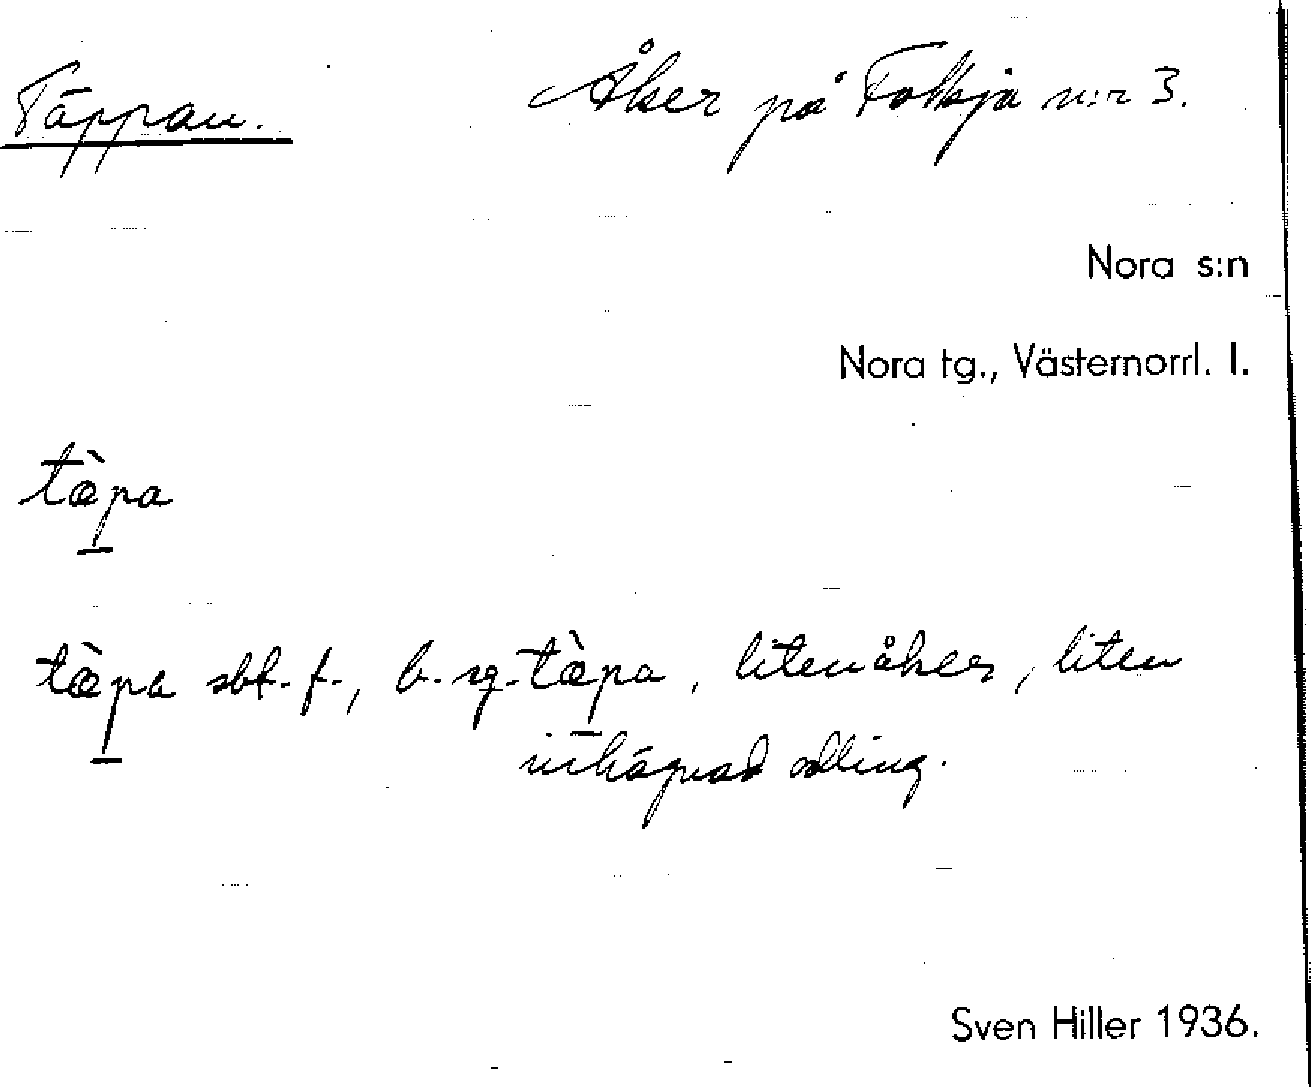 Täppan. Åker på Folkja n:r 3.
Nora s:n
Nora tg., Västernorrl. l.
tæ̀pa
tæ̀pa sbf. f., b. sg. tæ̀pa, liten åker, liten
inhägnad odling.
Sven Hiller 1936.